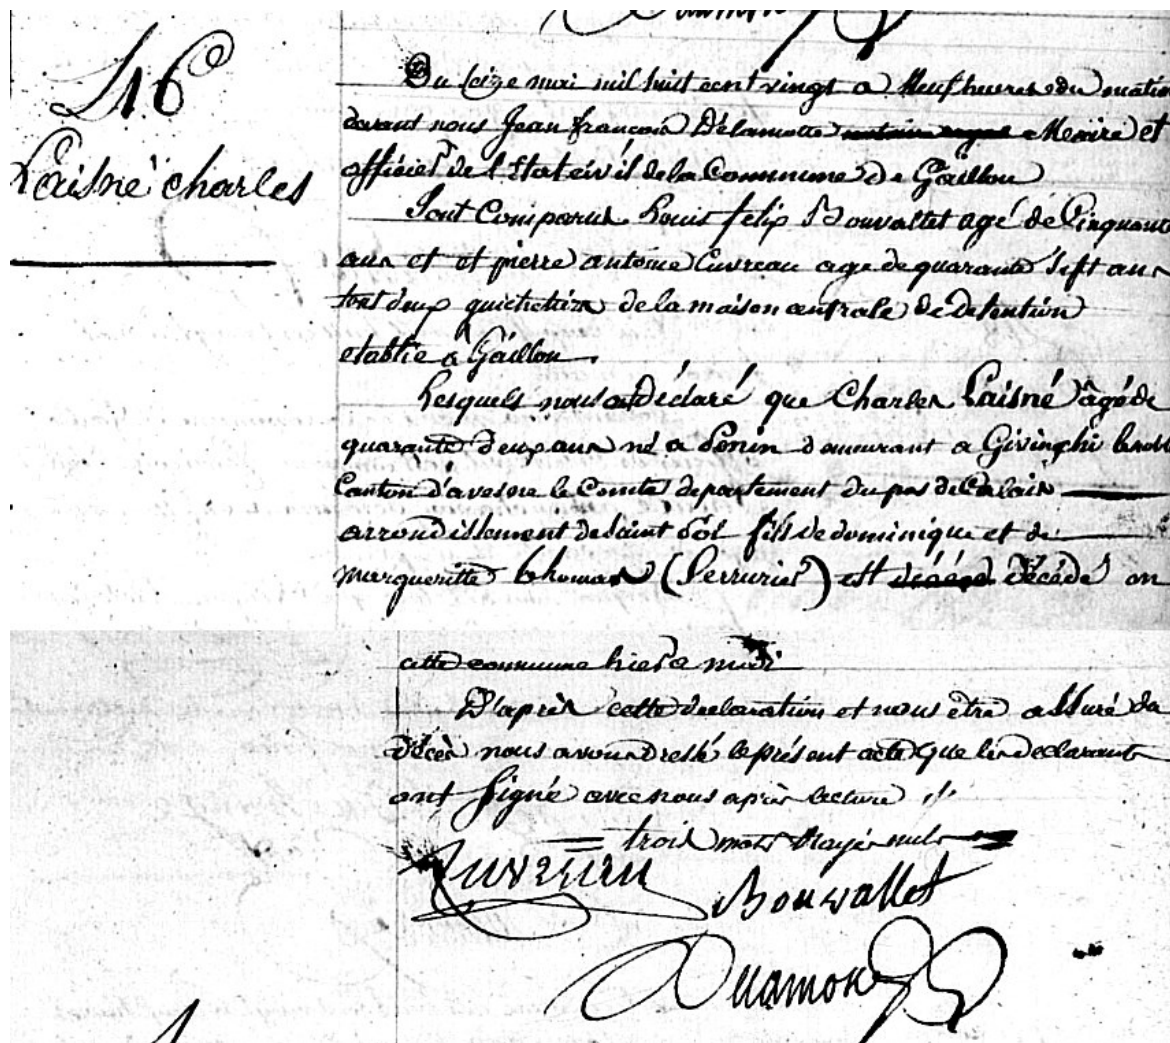 46
Laisné charles
Du Seize mai mil huit cent vingt a Neuf heures du matin
devant nous Jean francois Delamotte Maire et
officier de l'Etat civil de la Commune de Gaillon
Sont Comparus Louis felix Bouvallet agé de Cinquante
ans et et pierre antoine Cuvreau age de quarante Sept ans
tout deux guichetiers de la maison centrale de detention
etablie a Gaillon.
Lesquels nous ont Déclaré que Charles Laisné âgé de
quarante deux ans né a Penin demeurant a Givinghi
Canton d'avesne le Comte departement du pas de Calais
arrondissement de Saint Pol fils de dominique et de
margueritte thomas (Serrurier) est décédé en
cette commune hier a midi
D'après cette declaration et nous être assuré du
Décès nous avons Dressé le présent acte que les declarants
ont Signé avec nous après lecture
trois mots Rayés nuls
Bouvallet